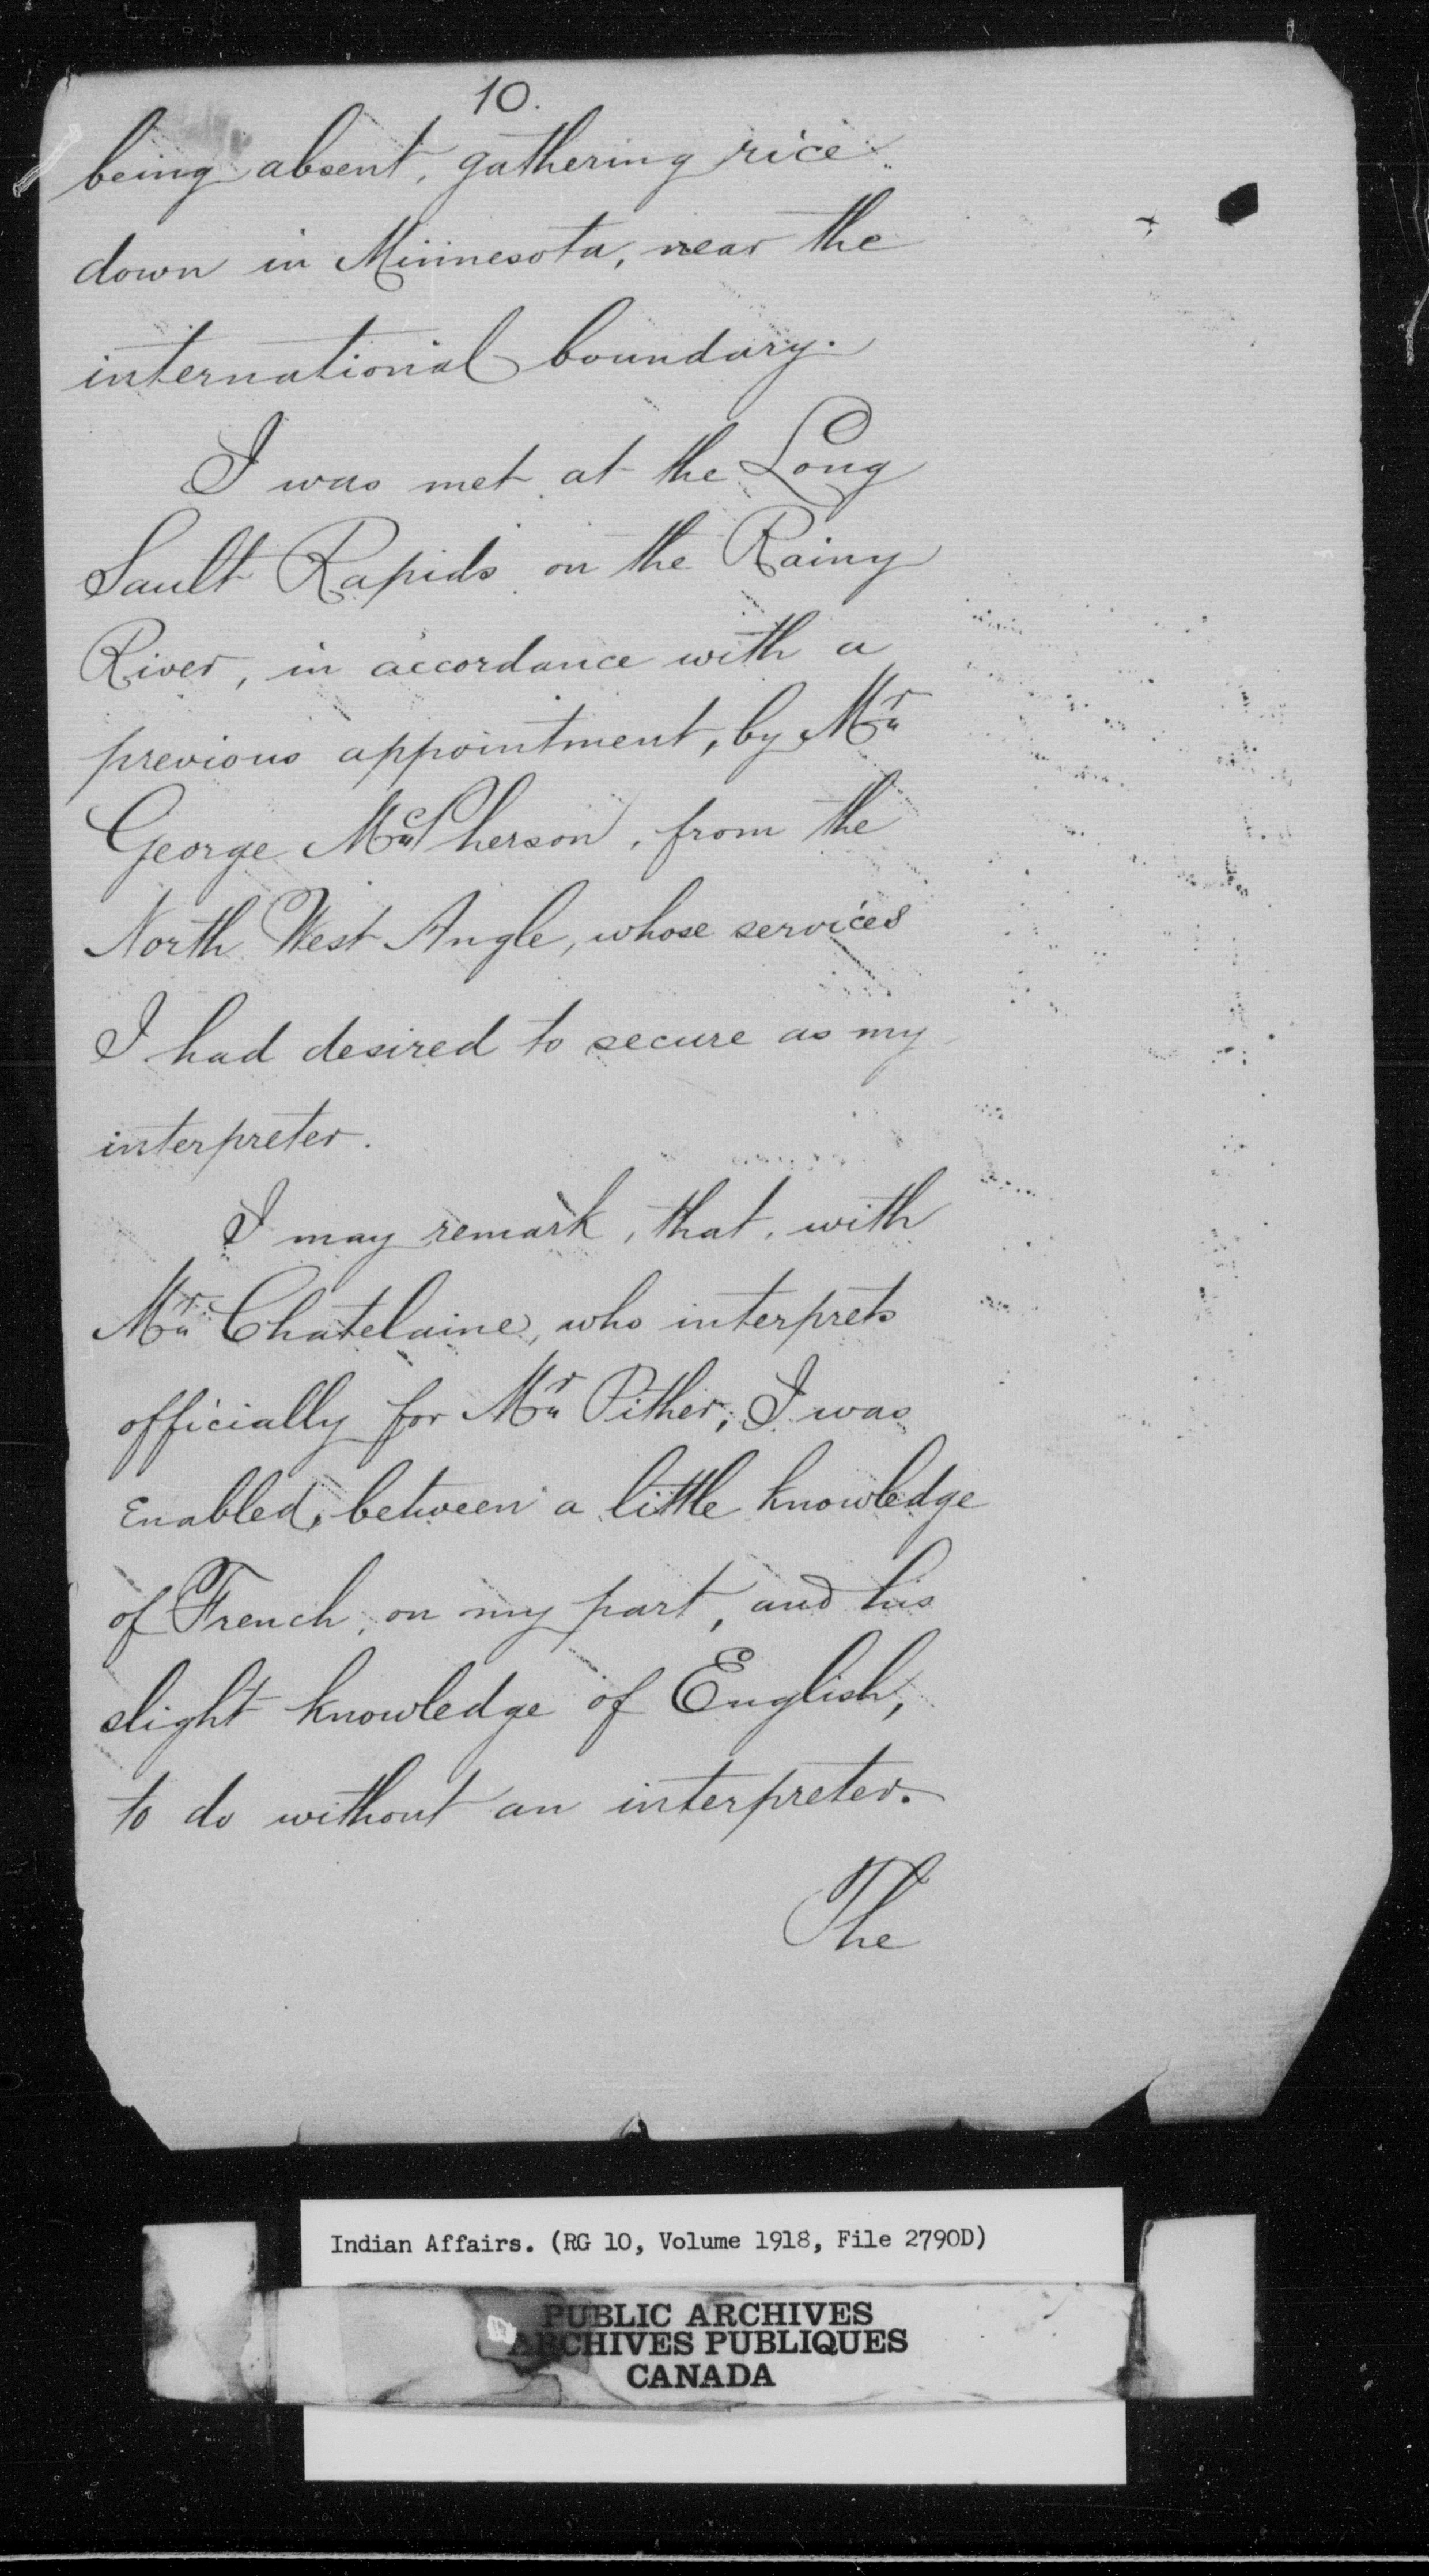 10.
being absent, gathering rice
down in Minnesota, near the
international boundary.
I was met at the Long
Sault Rapids on the Rainy
River, in accordance with a
previous appointment, by Mr
George McPherson, from the
North West Angle, whose services
I had desired to secure as my
interpreter.
I may remark, that, with
Mr Chatelaine, who interprets
officially for Mr Pither, I was
Enabled, between a little knowledge
of French, on my part, and his
slight knowledge of English,
to do without an interpreter.
The
Indian Affairs. (RG 10, Volume 1918, File 2790D)
PUBLIC ARCHIVES
ARCHIVES PUBLIQUES
CANADA